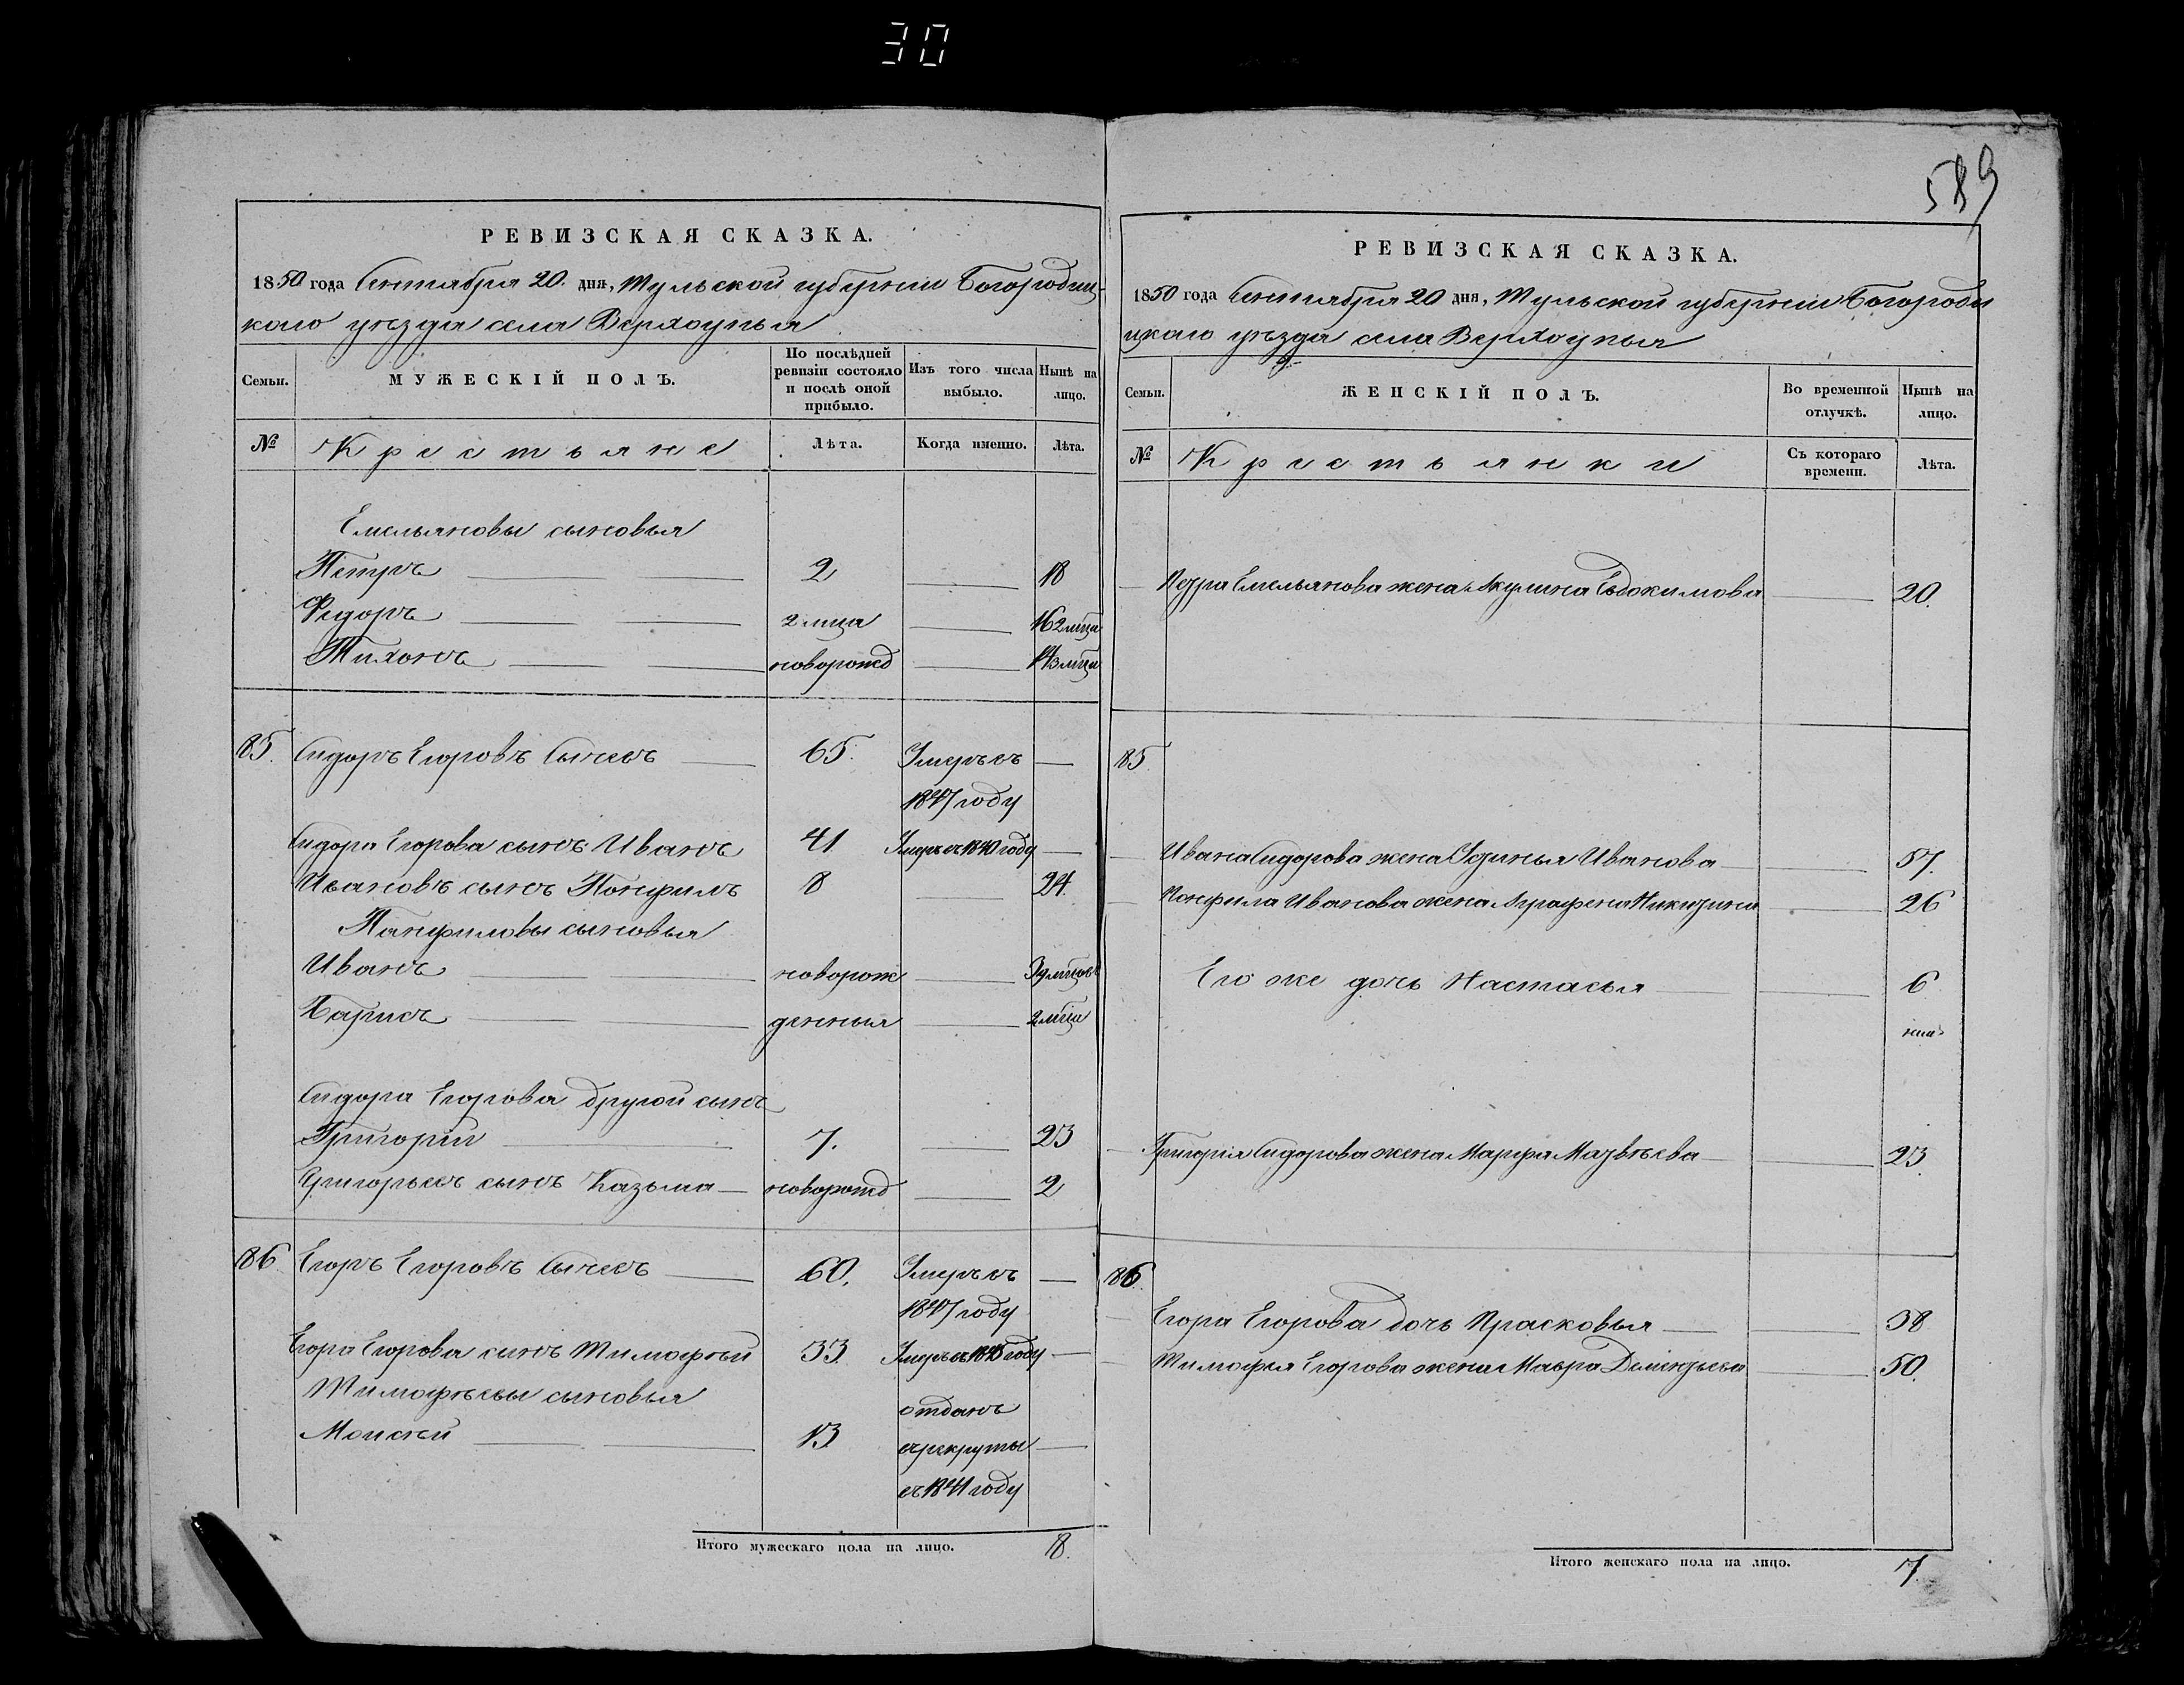 30
589
РЕВИЗСКАЯ СКАЗКА.
1850 года Сентября 20. дня, Тульской губернии Богородиц-
каго уезда села Верхоупья
Семьи.
МУЖЕСКІЙ ПОЛЪ.
По послѣдней ревизіи состояло и послѣ оной прибыло.
Изъ того числа выбыло.
Нынѣ на лицо.
№
Крестьяне
Лѣта.
Когда именно.
Лѣта.
Емельяновы сыновья
Петръ 2 18
Федоръ 2 мца 16 2 мца
Тихонъ новорожд 14 3 мца
85. Сидоръ Егоровъ Сычевъ 65. Умеръ въ
1847 году
Сидора Егорова сынъ Иванъ 41 Умеръ въ 1840 году
Ивановъ сынъ Понфилъ 8 24.
Панфиловы сыновья
Иванъ новорож 3
Барисъ денныя 2 мца
Сидора Егорова другой сынъ
Григорій 7. 23
Григорьевъ сынъ Казьма новорожд 2
86 Егоръ Егоровъ Сычевъ 60. Умеръ въ
1847 году
Егора Егорова сынъ Тимофѣй 33. Умеръ въ году
Тимофѣевы сыновья
отданъ
Моисѣй 13 въ рекруты
въ 1841 году
Итого мужескаго пола на лицо. 8.
РЕВИЗСКАЯ СКАЗКА.
1850 года Сентября 20 дня, Тульской губерніи Богороди
цкаго уѣзда села Верхоупья
Семьи.
ЖЕНСКІЙ ПОЛЪ.
Во временной отлучкѣ.
Нынѣ на лицо.
№
Крестьянки
Съ котораго времени.
Лѣта.
Петра Емельянова жена Акулина Евдокимова 20.
85
Ивана Сидорова жена Иванова 57.
Понфила Иванова жена Аграфена Никитина 26
Его же дочь Настасья 6
Григорія Сидорова жена Марфа Матвѣева 23.
86.
Егора Егорова дочь Прасковья 38
Тимофея Егорова жена Мавра Дементьева 50.
Итого женскаго пола на лицо. 7.